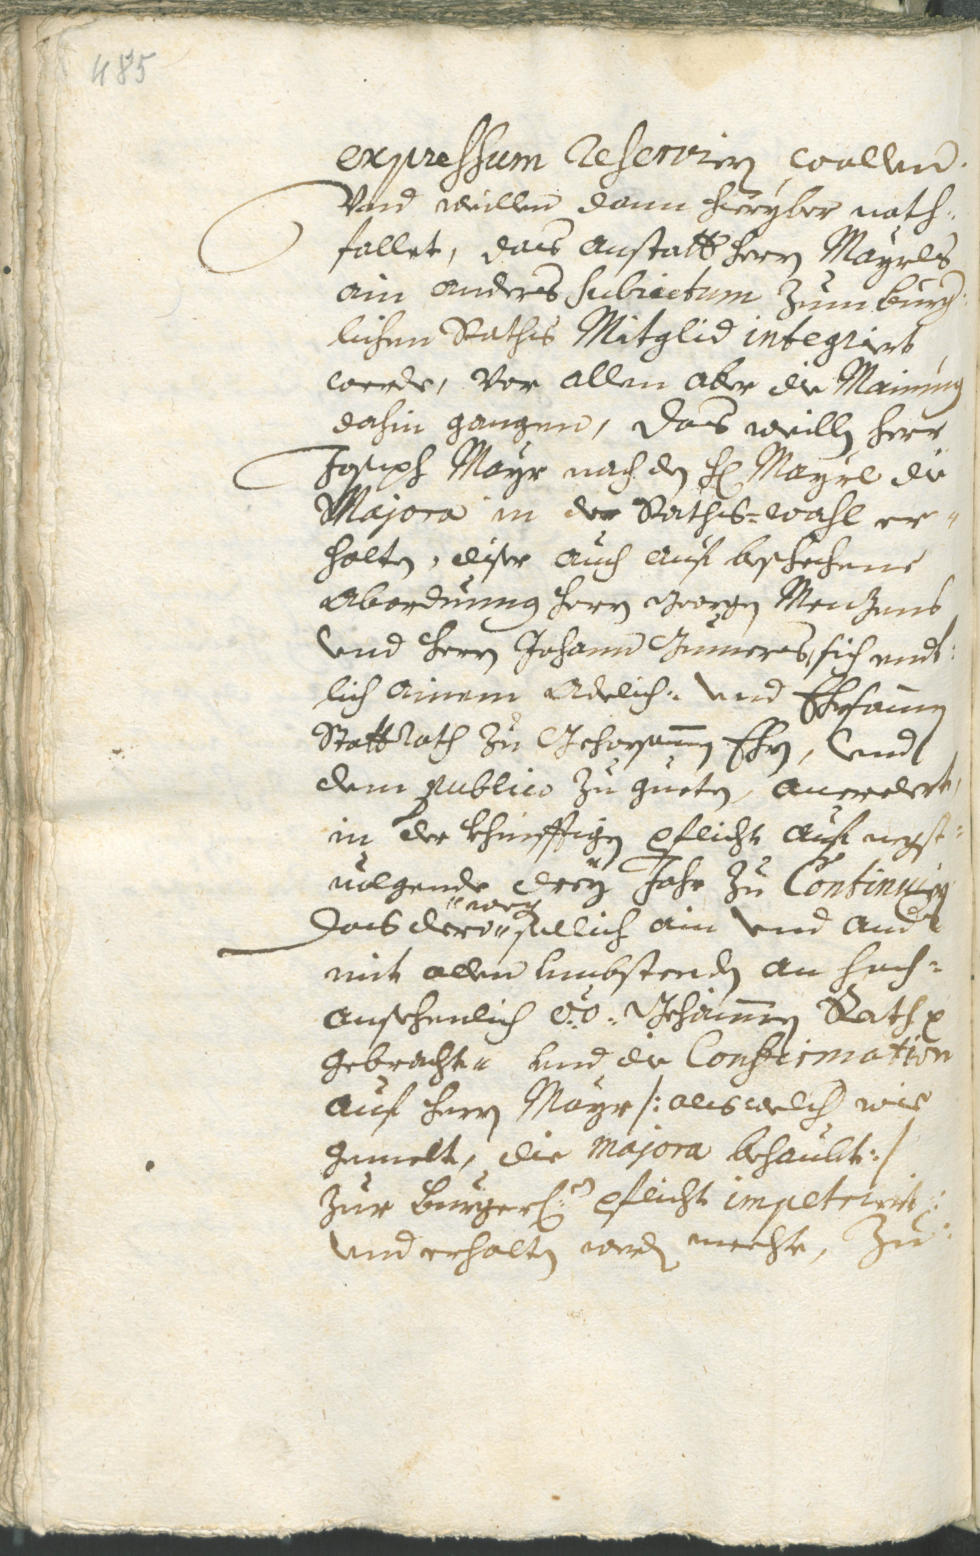 485
expressum Reserviern wollen.
Vnd weillen dann hieryber noth=
fallet, das anstatt herrn Mayrls
ain anders subiectum zum burger=
lichen Raths Mitglid integriert
werde, vor allen aber die Mainung
dahin gangen, das weilln herr
Joseph Mayr nach dem H: Mayrl die
Majora in der Raths=wahl er=
halten, diser auch auf beschehene
Abordnung herrn Georgen Menzens
vnd herrn Johann sich endt=
lich ainem Adelich= vnd Ehrsamen
Stattrath zu Gehorsamen Ehrn, vnd
dem publico zu gueten,
in der khünfftigen pflicht auf negst=
uolgende drey Jahr zu Continuirn
Das dero ain vnd anders
mit allen vmbstenden an hoch=
ansehenlich O: Ö: Gehaimen Rath
gebracht= vnd die Confirmation
auf herrn Mayr /: als welcher wie
gemelt, die majora behaubt :/
zur Burgerl: pflicht impetriert=
vnd erhalten werden mechte, Zu=